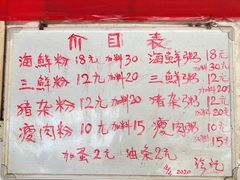 价目表
海鮮粉 18元 加料30 海鮮粥 18元 加料30元
三鮮粉 12元 加料20 三鮮粥 12元 加料20
猪杂粉 12元 加料20 猪杂粥 12元 加料20
瘦肉粉 10元 加料15 瘦肉粥 10元 加料15
加蛋2元 油条2元
2020